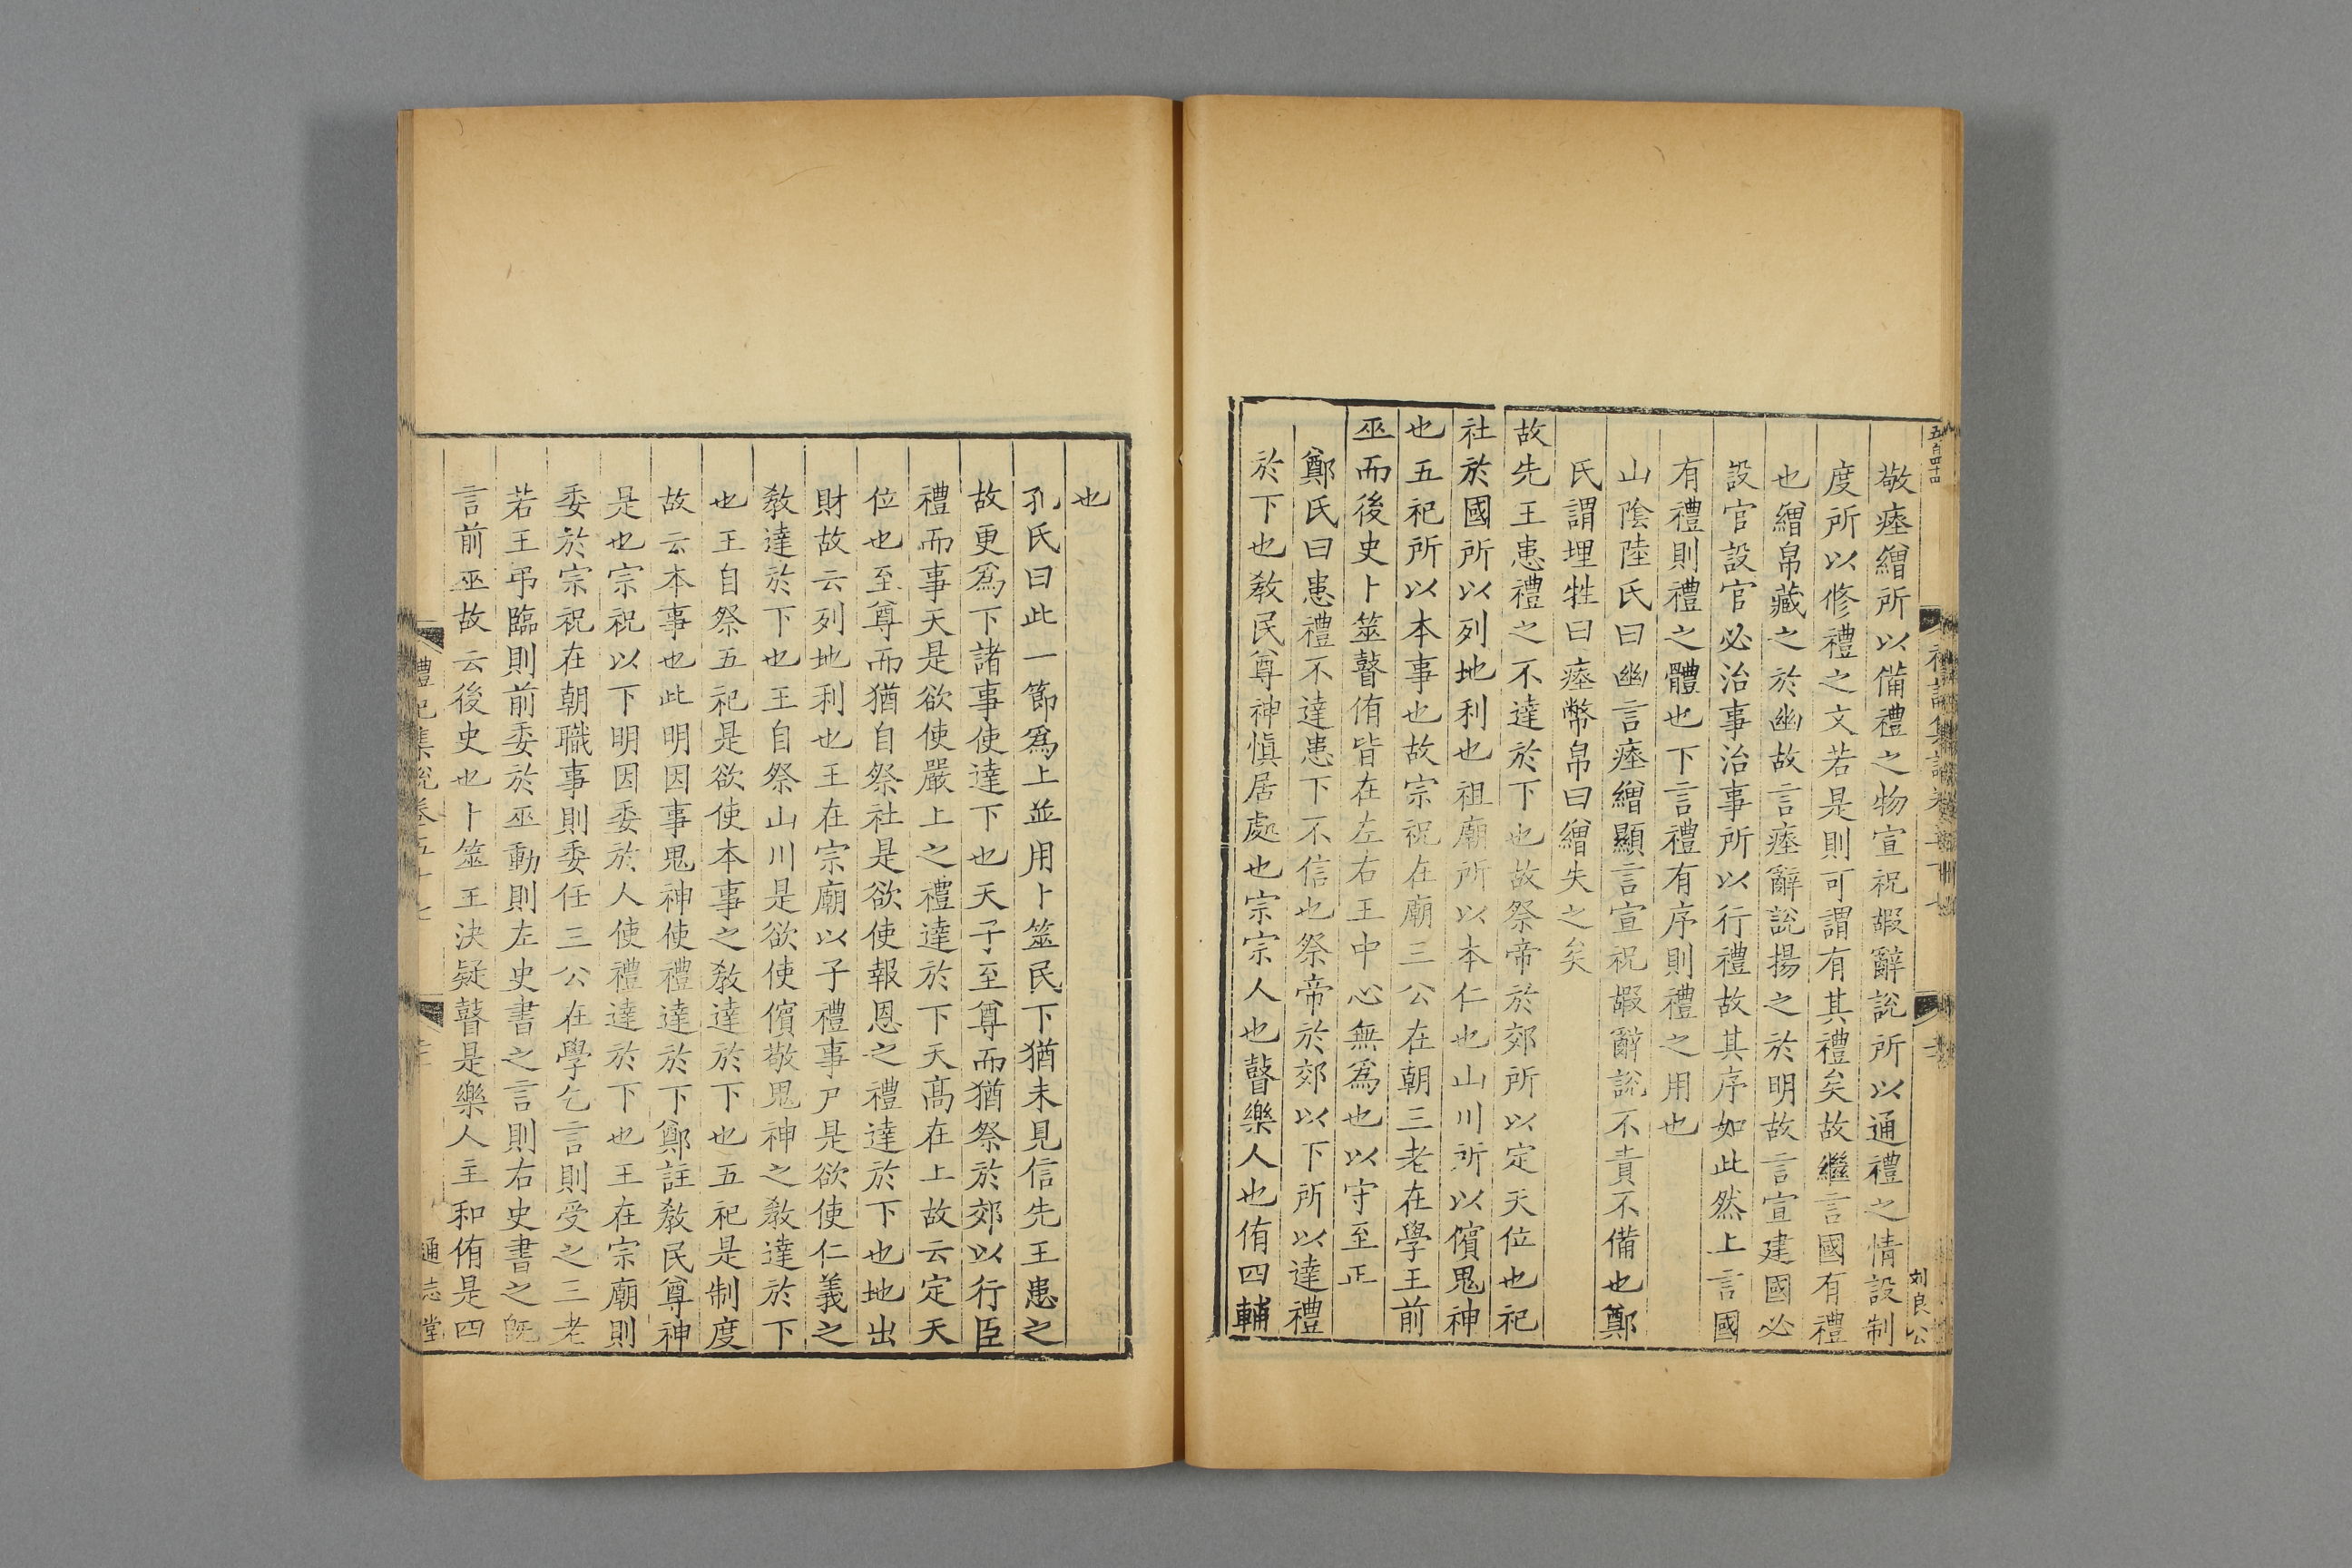 五百四十四
刘良公
敬瘞繒所以備禮之物宣祝嘏辭說所以通禮之情設制
度所以修禮之文若是則可謂有其禮矣故繼言國有禮
也繒帛藏之於幽故言瘞辭說揚之於明故言宣建國必
設官設官必治事治事所以行禮故其序如此然上言國
有禮則禮之體也下言禮有序則禮之用也
山陰陸氏曰幽言瘞繒顯言宣祝嘏辭說不責不備也鄭
氏謂埋牲曰瘞幣帛曰繒失之矣
故先王患禮之不達於下也故祭帝於郊所以定天位也祀
社於國所以列地利也祖廟所以本仁也山川所以儐鬼神
也五祀所以本事也故宗祝在廟三公在朝三老在學王前
巫而後史卜筮瞽侑皆在左右王中心無為也以守至正
鄭氏曰患禮不達患下不信也祭帝於郊以下所以達禮
於下也教民尊神慎居處也宗宗人也瞽樂人也侑四輔
也
孔氏曰此一節為上並用卜筮民下猶未見信先王患之
故更為下諸事使達下也天子至尊而猶祭於郊以行臣
禮而事天是欲使嚴上之禮達於下天高在上故云定天
位也至尊而猶自祭社是欲使報恩之禮達於下也地出
財故云列地利也王在宗廟以子禮事尸是欲使仁義之
教達於下也王自祭山川是欲使儐敬鬼神之教達於下
也王自祭五祀是欲使本事之教達於下也五祀是制度
故云本事也此明因事鬼神使禮達於下鄭註教民尊神
是也宗祝以下明因委於人使禮達於下也王在宗廟則
委於宗祝在朝職事則委任三公在學乞言則受之三老
若王弔臨則前委於巫動則左史書之言則右史書之旣
言前巫故云後史也卜筮主決疑瞽是樂人主和侑是四
禮記集說卷五十七
通志堂